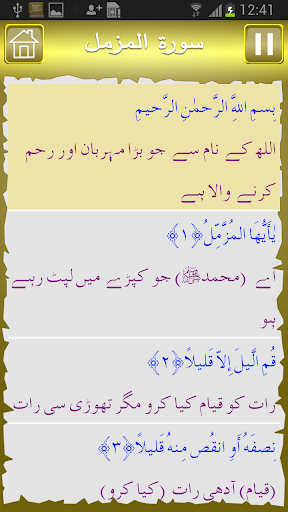 12:41
سورة المزمل
بِسمِ اللَّهِ الرَّحمٰنِ الرَّحيمِ
اللھ کے نام سے جو بڑا مہربان اور رحم
کرنے والا ہے
يٰأَيُّهَا المُزَّمِّلُ ﴿١﴾
اے (محمدﷺ) جو کپڑے میں لپٹ رہے
ہو
قُمِ الَّيلَ إِلّا قَليلًا ﴿٢﴾
رات کو قیام کیا کرو مگر تھوڑی سی رات
نِصفَهُ أَوِ انقُص مِنهُ قَليلًا ﴿٣﴾
(قیام) آدھی رات (کیا کرو)